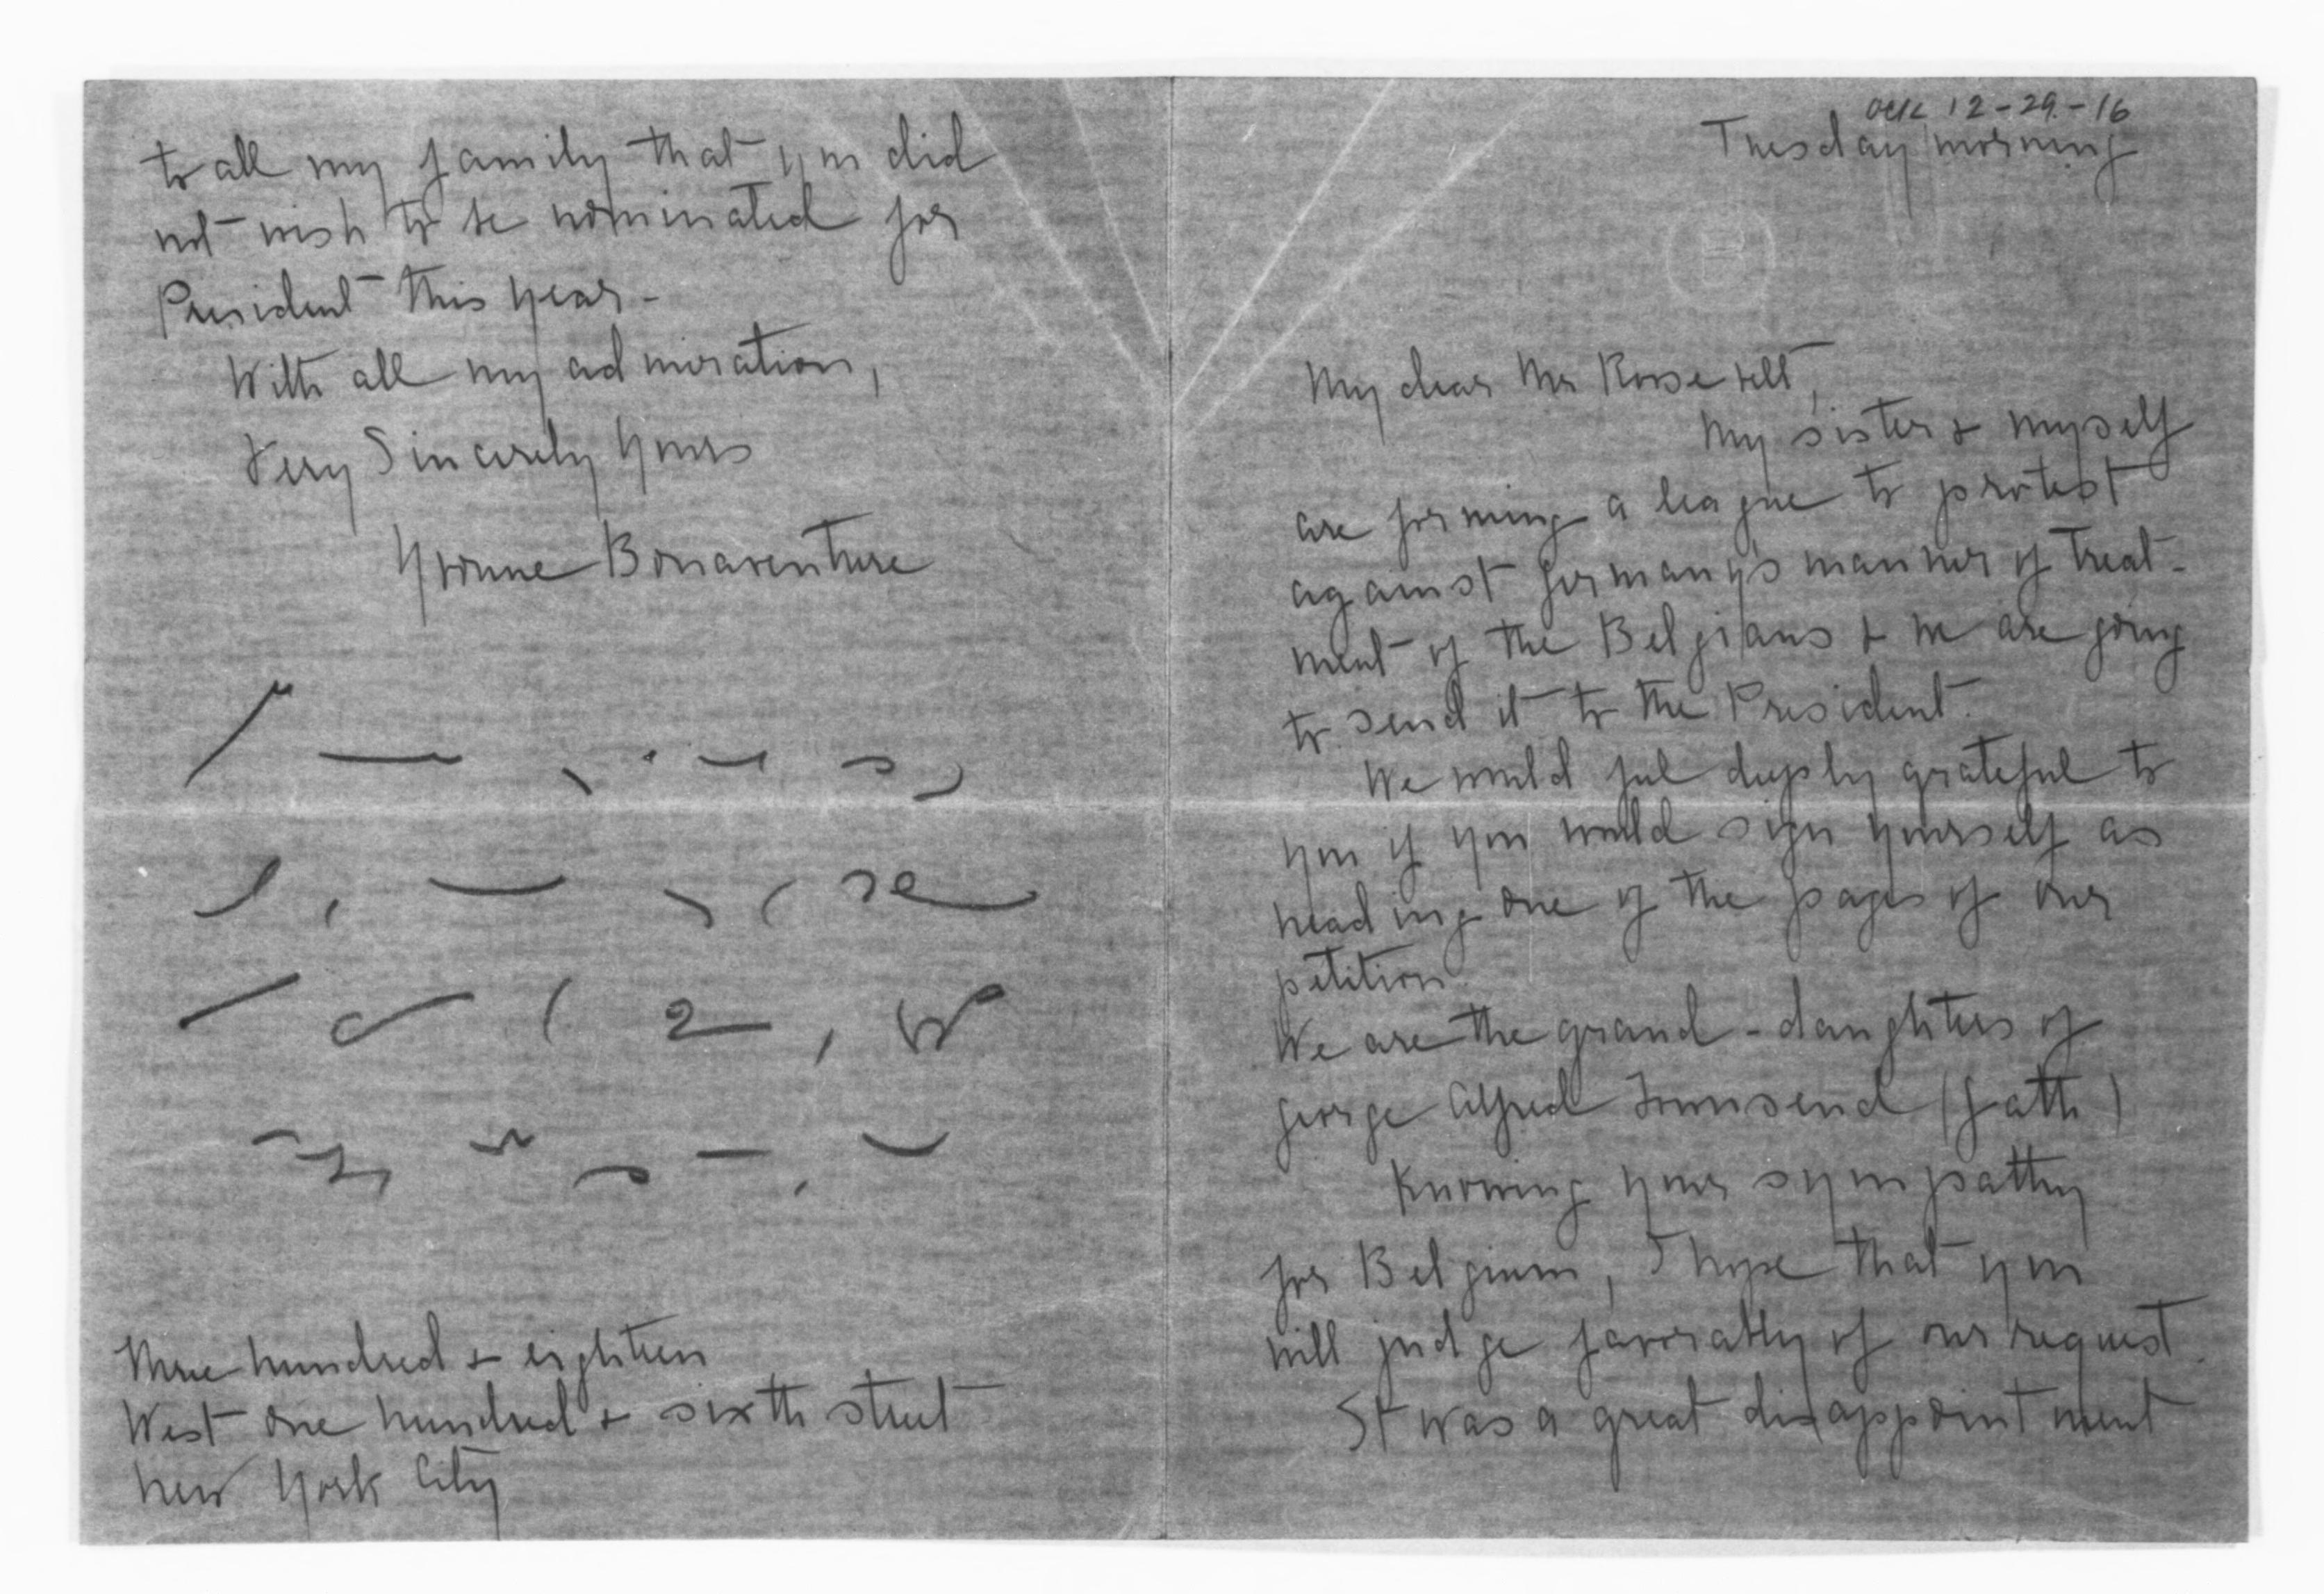 ack 12-29-16
Tuesday morning
My dear Mr Roosevelt,
My sister & myself
are forming a league to protest
against Germany's manner of treat-
ment of the Belgians & we are going
to send it to the President.
We would feel deeply grateful to
you if you would sign yourself as
heading one of the pages of our
petition.
We are the grand-daughters of
George Alfred Townsend (Gath)
Knowing your sympathy
for Belgium, I hope that you
will judge favorably of our request.
It was a great disappointment
to all my family that you did
not wish to be nominated for
President this year-
With all my admiration,
Very Sincerely Yours
Yvonne Bonaventure
Three hundred & eighteen
West One hundred & sixth street
New York City